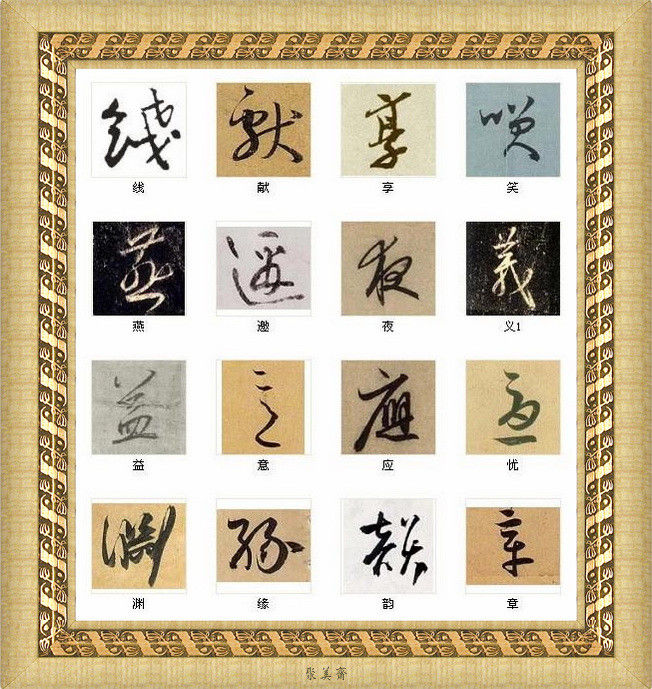 线 献 享 笑
燕 邀 夜 义1
益 意 应 忧
渊 缘 韵 章
聚美斋